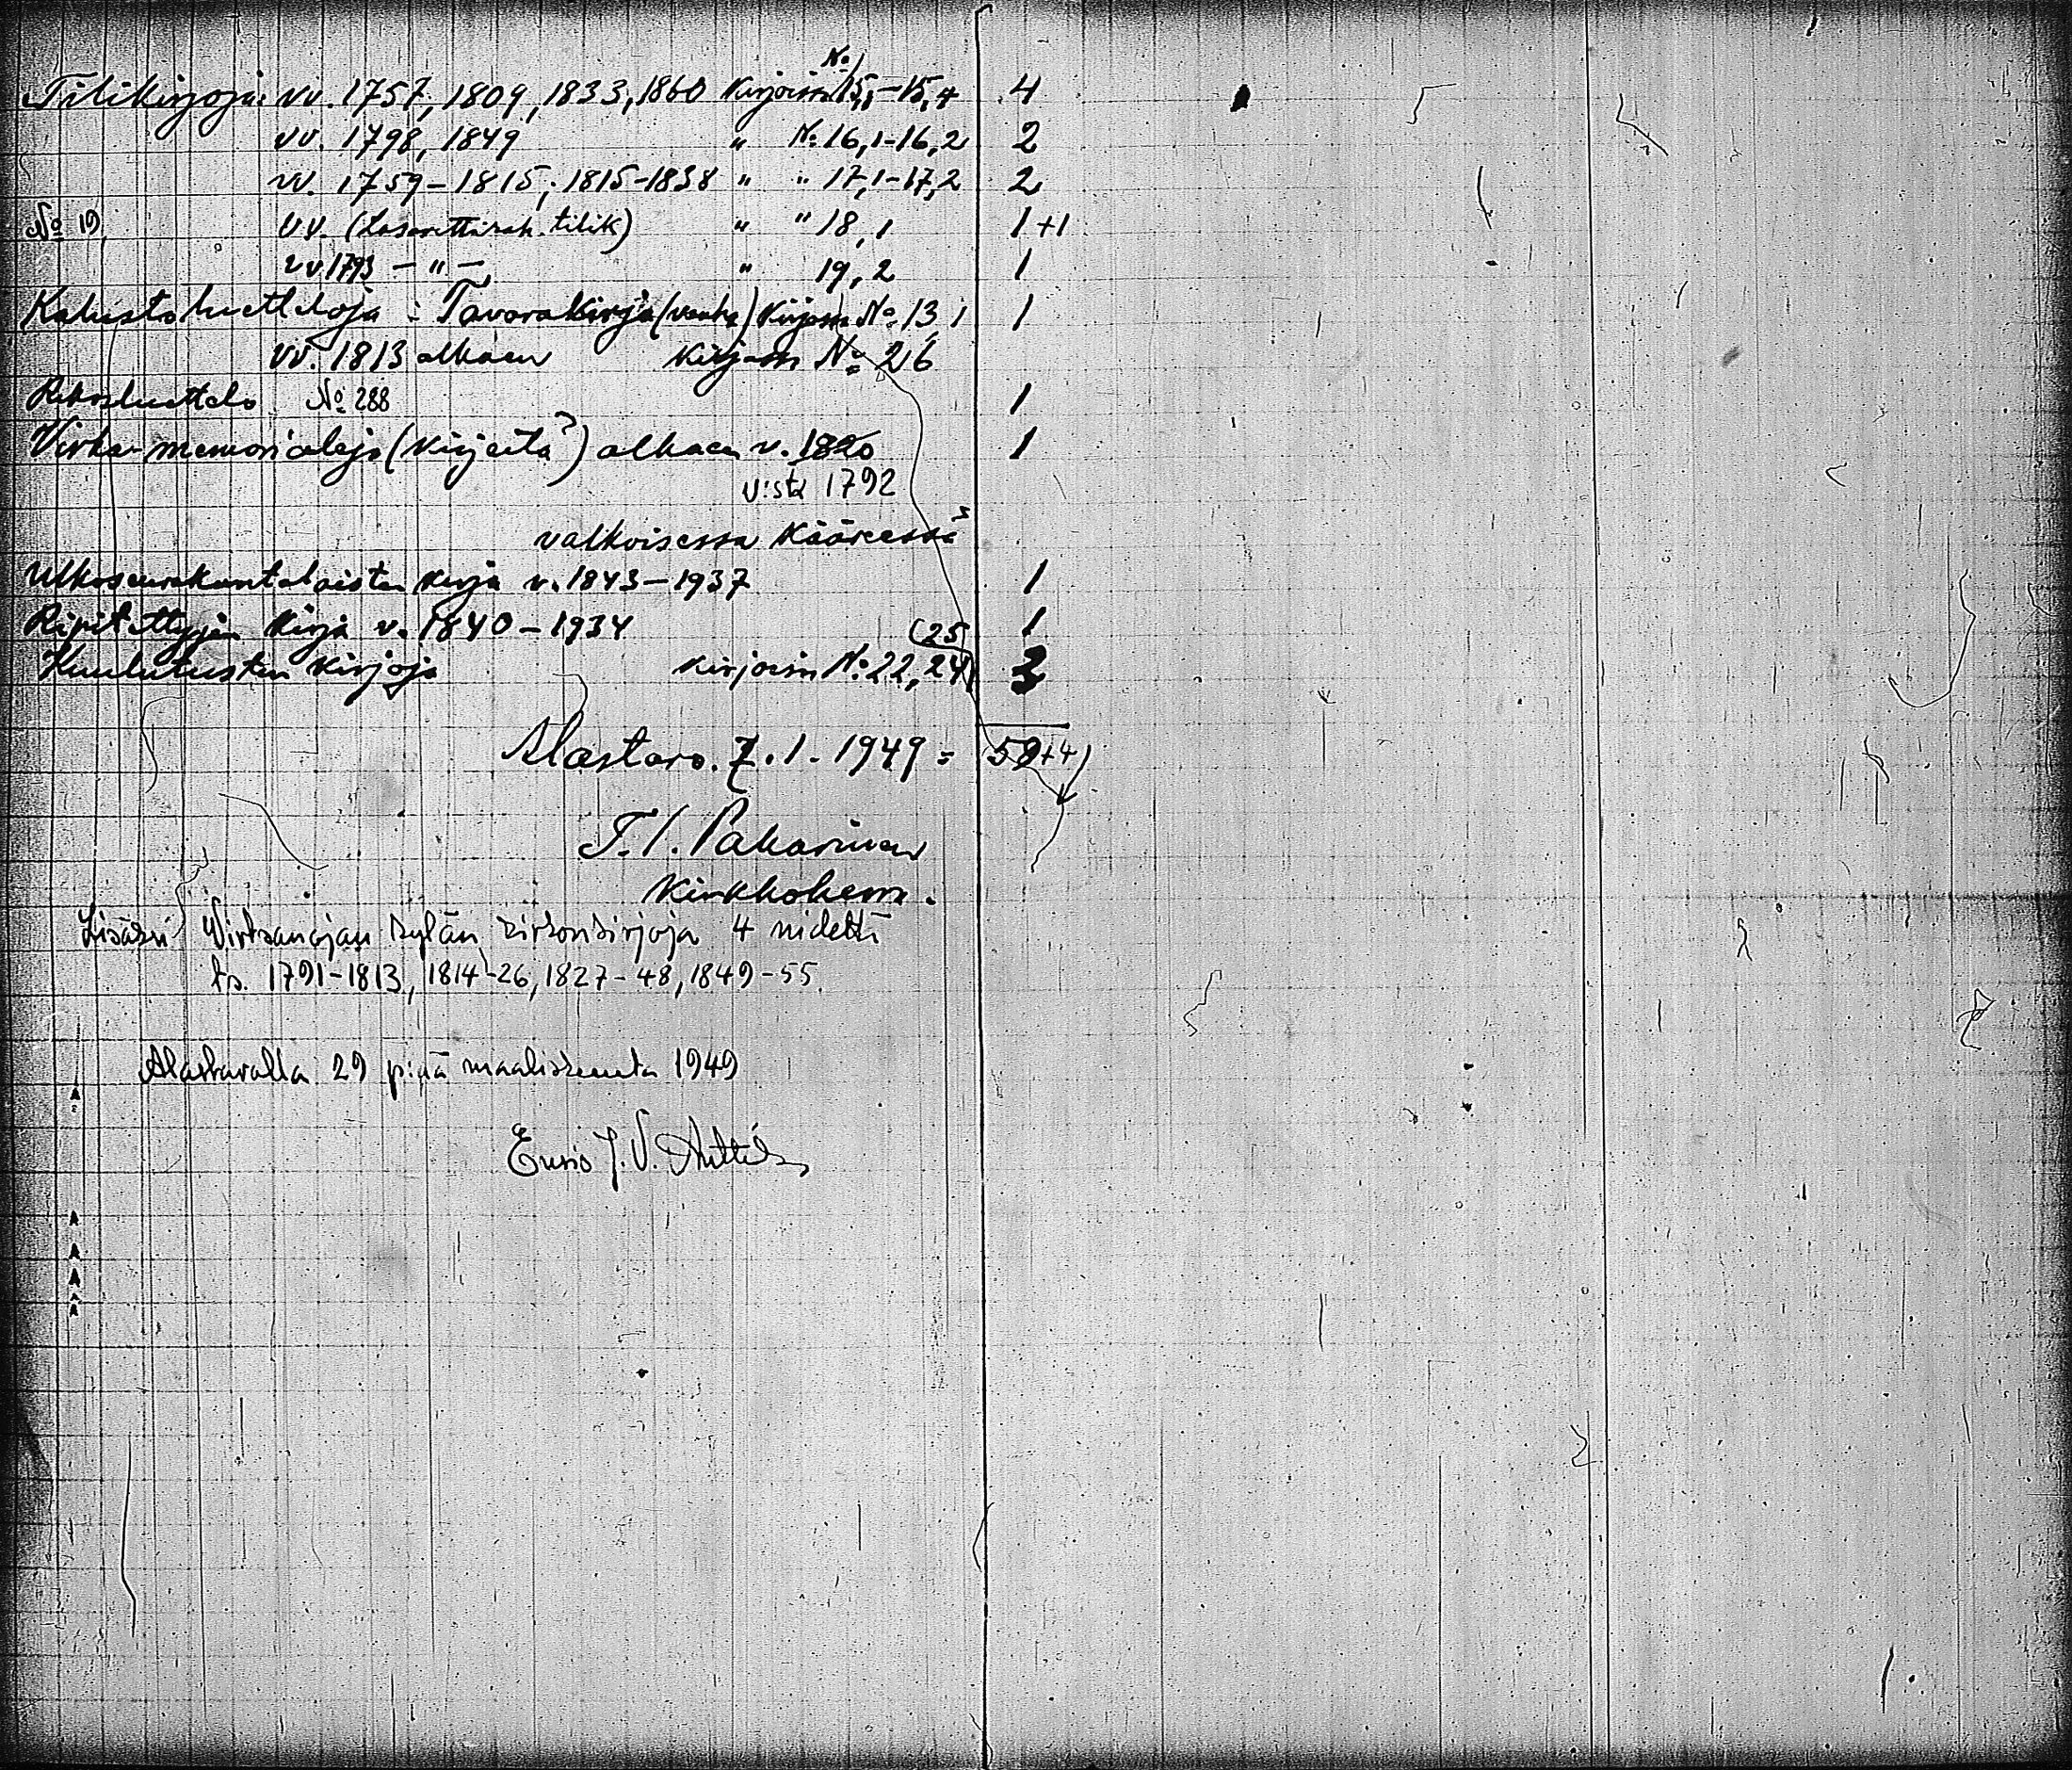 Tilikirjoja: vv. 1757, 1809, 1833, 1860 Kirjoissa No 15,1-15,4 4
vv. 1798, 1849 " No 16,1-16,2 2
vv. 1759-1815; 1815-1838 " " 17,1-17,2 2
No 19, vv. (Lasarettirah. tilik) " " 18,1 1+1
vv 1793 - " - " 19,2 1
Kalustoluetteloja: Tavarakirja (vanha) Kirjassa No 13,1 1
vv. 1813 alkaen Kirjassa No 26
Rikosluettelo No 288 1
Virka-memorialeja (kirjeitä) alkaen v. 1820 1
v:sta 1792
valkoisessa Kääreessä
Ulkoseurakuntalaisten kirja v. 1843-1937 1
Ripitettyjen kirja v. 1840-1934 1
Kuulutusten kirjoja kirjoissa No 22, 24, (25) 3
Alastaro. 7.1.1949 = 59+4
T.I. Pakarinen
Kirkkoherra.
Lisäksi Virtsanojan kylän kirkonkirjoja 4 nidettä
ts. 1791-1813, 1814-26, 1827-48, 1849-55.
Alastarolla 29 p:nä maaliskuuta 1949
Ensio J.V. Anttila